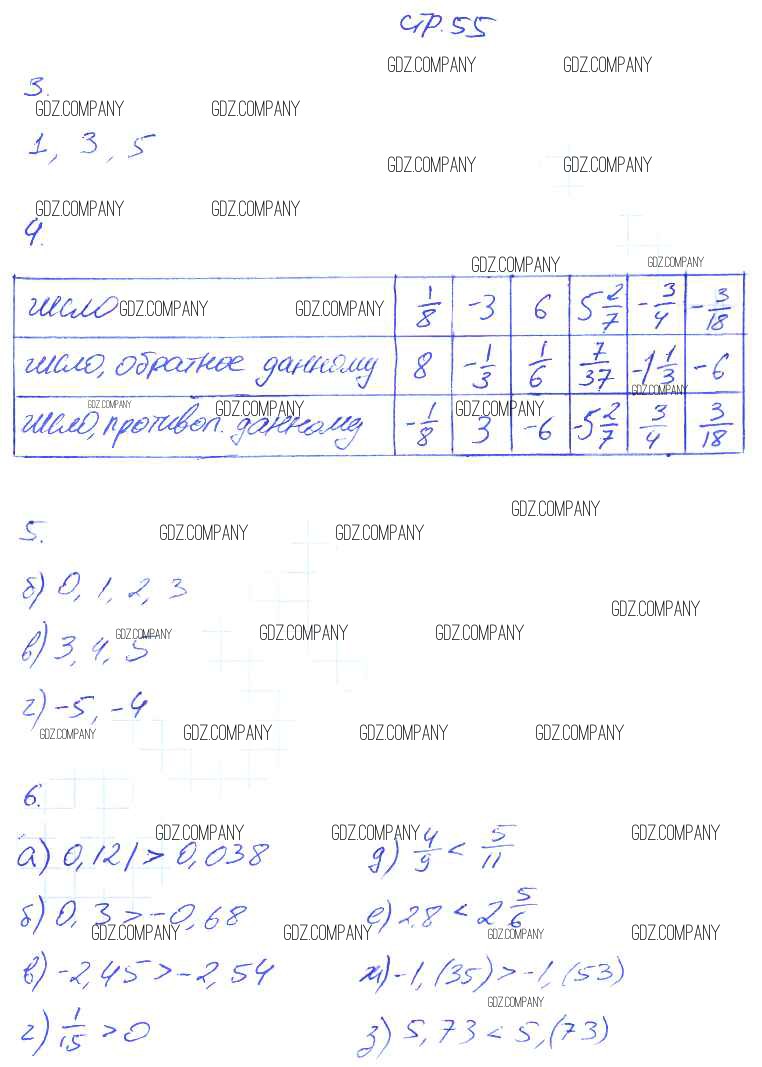 стр. 55
GDZ.COMPANY GDZ.COMPANY
3.
GDZ.COMPANY GDZ.COMPANY
1, 3, 5
GDZ.COMPANY GDZ.COMPANY
GDZ.COMPANY GDZ.COMPANY
4.
GDZ.COMPANY GDZ.COMPANY
число GDZ.COMPANY GDZ.COMPANY 1/8 -3 6 5 2/7 -3/4 -3/18
число, обратное данному 8 -1/3 1/6 7/37 -1 1/3 -6
GDZ.COMPANY
GDZ.COMPANY GDZ.COMPANY GDZ.COMPANY
число, противоп. данному -1/8 3 -6 -5 2/7 3/4 3/18
GDZ.COMPANY
5.
GDZ.COMPANY GDZ.COMPANY
б) 0, 1, 2, 3
GDZ.COMPANY
в) 3, 4, 5
GDZ.COMPANY GDZ.COMPANY GDZ.COMPANY
г) -5, -4
GDZ.COMPANY GDZ.COMPANY GDZ.COMPANY GDZ.COMPANY
6.
GDZ.COMPANY GDZ.COMPANY GDZ.COMPANY
а) 0,121 > 0,038 д) 4/9 < 5/11
б) 0,3 > -0,68 е) 2,8 < 2 5/6
GDZ.COMPANY GDZ.COMPANY GDZ.COMPANY GDZ.COMPANY
в) -2,45 > -2,54 ж) -1,(35) > -1,(53)
GDZ.COMPANY
г) 1/15 > 0 з) 5,73 < 5,(73)